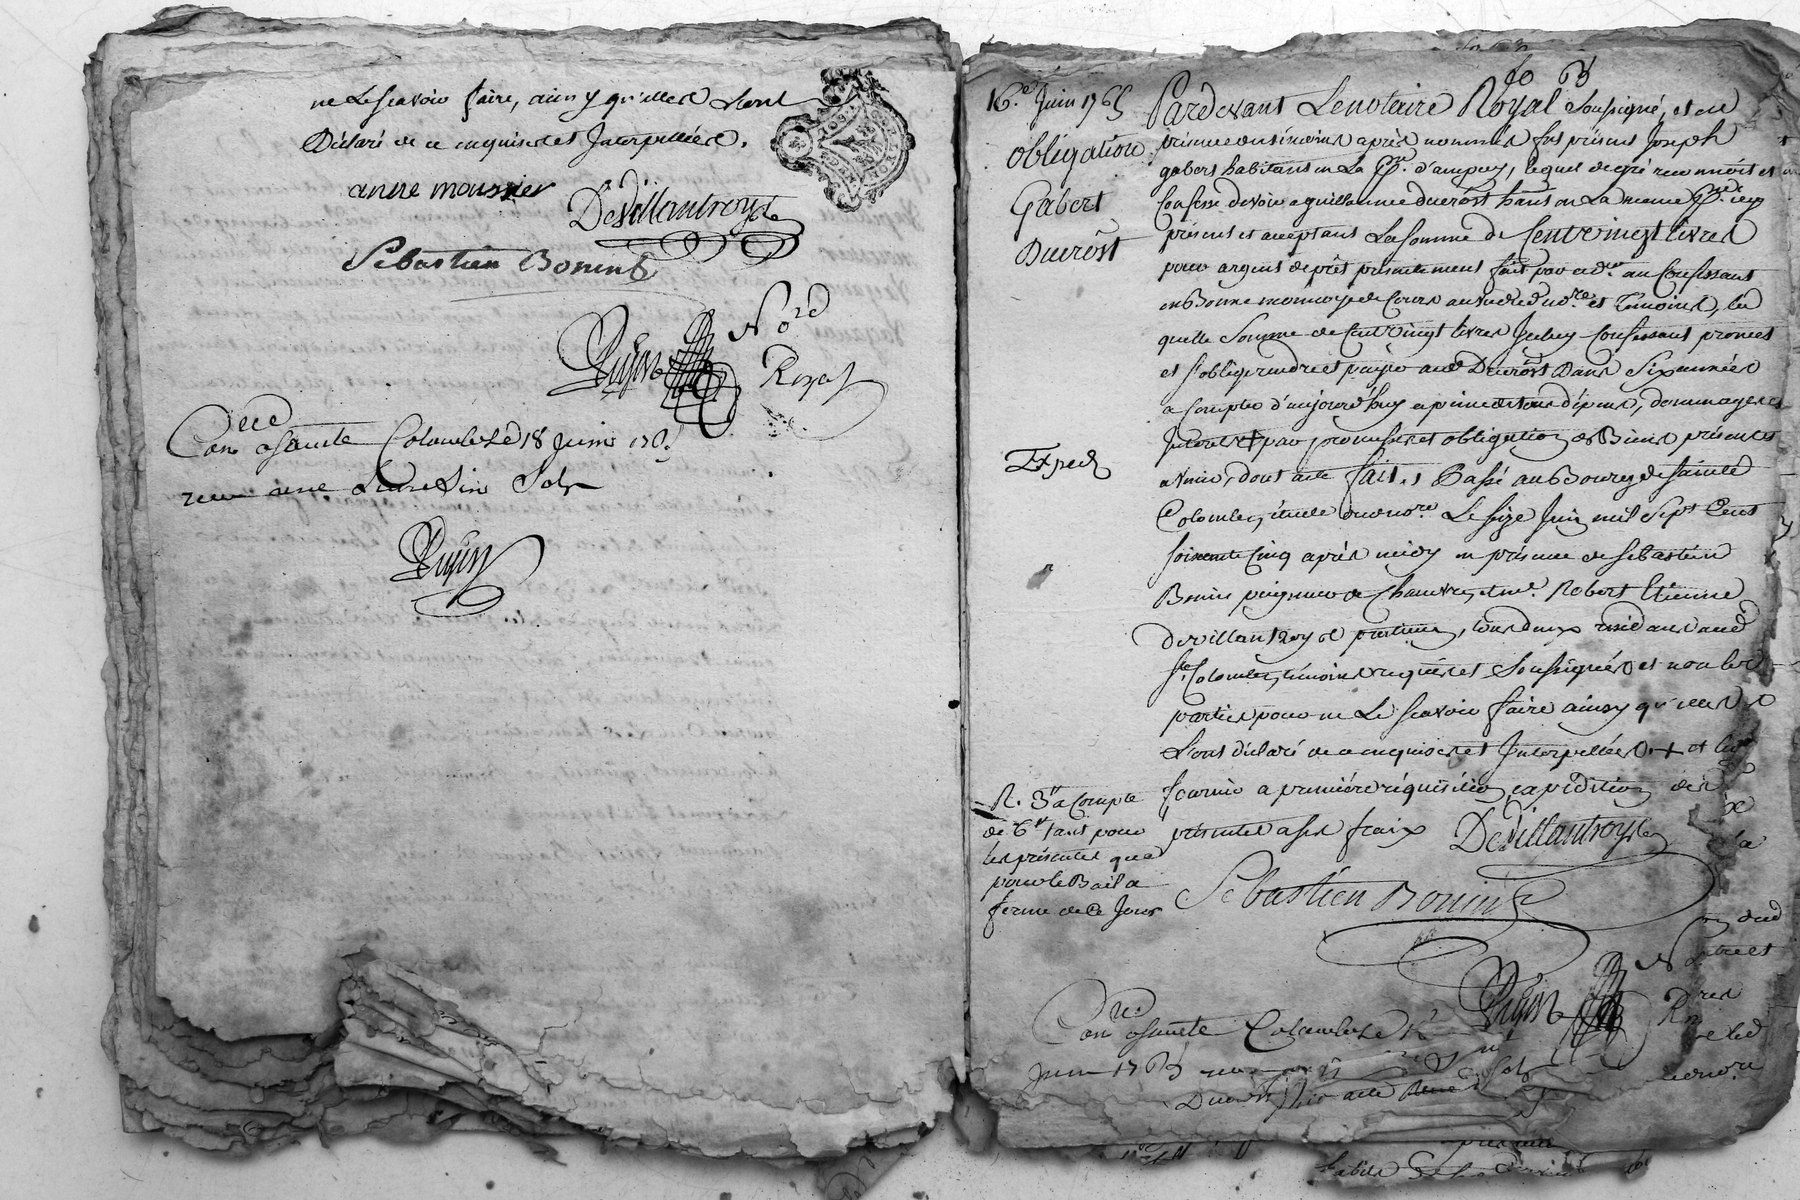 ne le scavoir faire, ainsy qu'illes l'ont
Déclaré de ce enquises et Interpellées.
andre moussier
Devillantroys
Sebastien Bonin
No.re
Royal
Con.lle a Sainte Colombe Le 18 Juin 176
receu
16.e Juin 1765
obligation
Gabert
Ducrôst
Exped
fo 63
Pardevant Le notaire Royal soussigné, et en
presence des témoins après nommés fut présent Joseph
gabert habitant en La P.sse d'ampuy, lequel de gré reconnoit et
Confesse devoir a guillaume ducrôst hânt en La meme P.sse icy
présent et acceptant La somme de Cent vingt livres
pour argent de prêt présentement fait par ced.ier au Confessant
en Bonne monnoye de Cours au vu de nd no.re et témoins, la
quelle Somme de Cent vingt livres Iceluy Confessant promet
et s'oblige rendre et payer aud Ducrôst Dans Six années
a Compter d'aujourd'huy a peine de tous dépens, dommages et
Interets par promesses et obligation de Biens présents et
a venir, dont acte fait et Passé au Bourg de Sainte
Colombe, étude dud no.re Le seize Juin mil Sept Cent
soixante Cinq après midy en présence de Sebastien
Bonin peigneur de Chanvre, et m.e Robert Etienne
Devillantroys praticien, tous deux résidants aud
S.te Colombe, témoins requis et Soussignés et non les
parties pour ne Le scavoir faire ainsy qu'illes
L'ont déclaré de ce enquises et Interpellées. + et les
fournir a première réquisition expédition des
présentes a ses fraix
Devillantroys
R. 3# a Compte
de 6# tant pour
les présentes que
pour le Bail a
ferme de Ce Jour
Sebastien Bonin
Con.lle a Sainte Colombe Le
Juin 1765